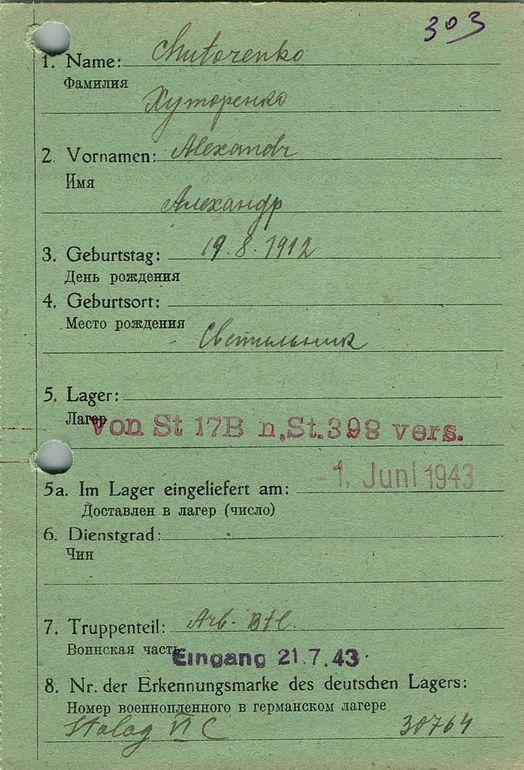 303
1. Name: Chutorenko
Фамилия
Хуторенко
2. Vornamen: Alexandr
Имя
Александр
3. Geburtstag: 19.8.1912
День рождения
4. Geburtsort:
Место рождения
Светильник
5. Lager:
Лагер
von St 17B n.St.398 vers.
-1. Juni 1943
5a. Im Lager eingeliefert am:
Доставлен в лагер (число)
6. Dienstgrad:
Чин
7. Truppenteil: Arb- Btl.
Воинская часть
Eingang 21.7.43.
8. Nr. der Erkennungsmarke des deutschen Lagers:
Номер военнопленного в германском лагере
Stalag VI C 30764